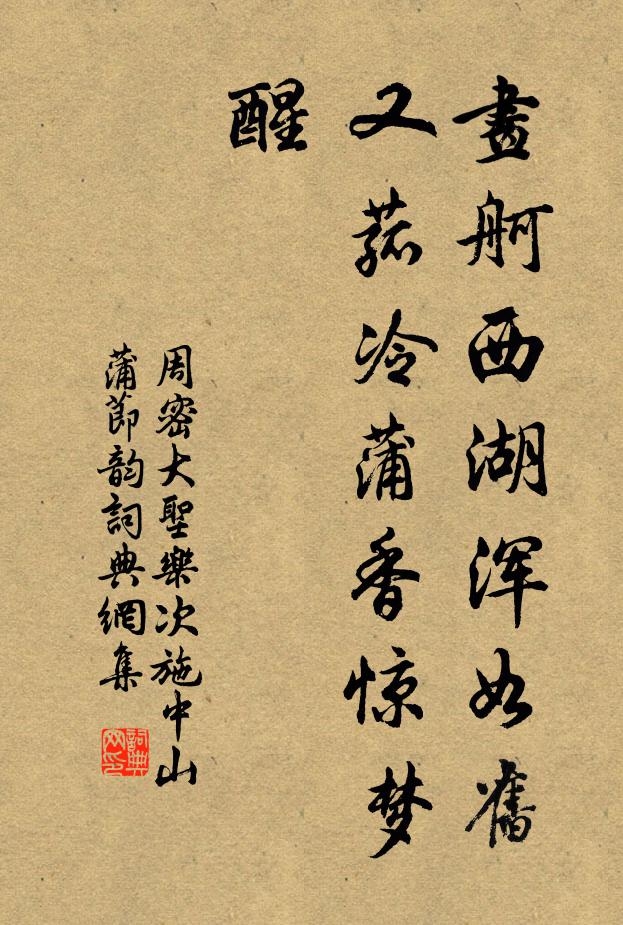 畫舸西湖浑如舊
又菰冷蒲香惊梦
醒
周密大聖樂次施中山
蒲節韵詞典網集
詞典
网印